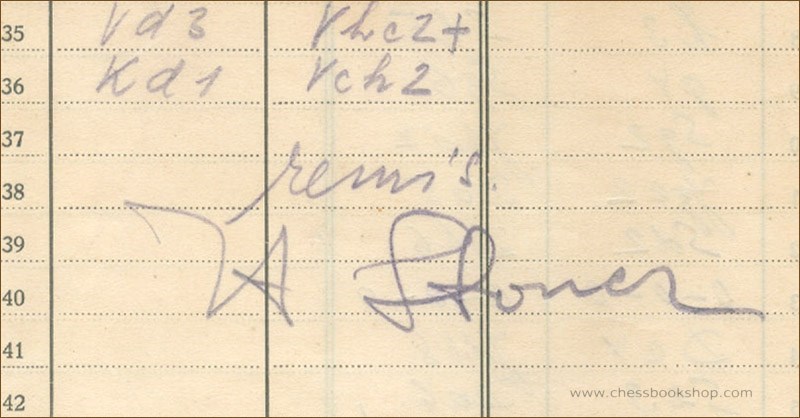 35 Vd3 Vhc2+
36 Kd1 Vch2
37
remis.
38
39
40
41
www.chessbookshop.com
42